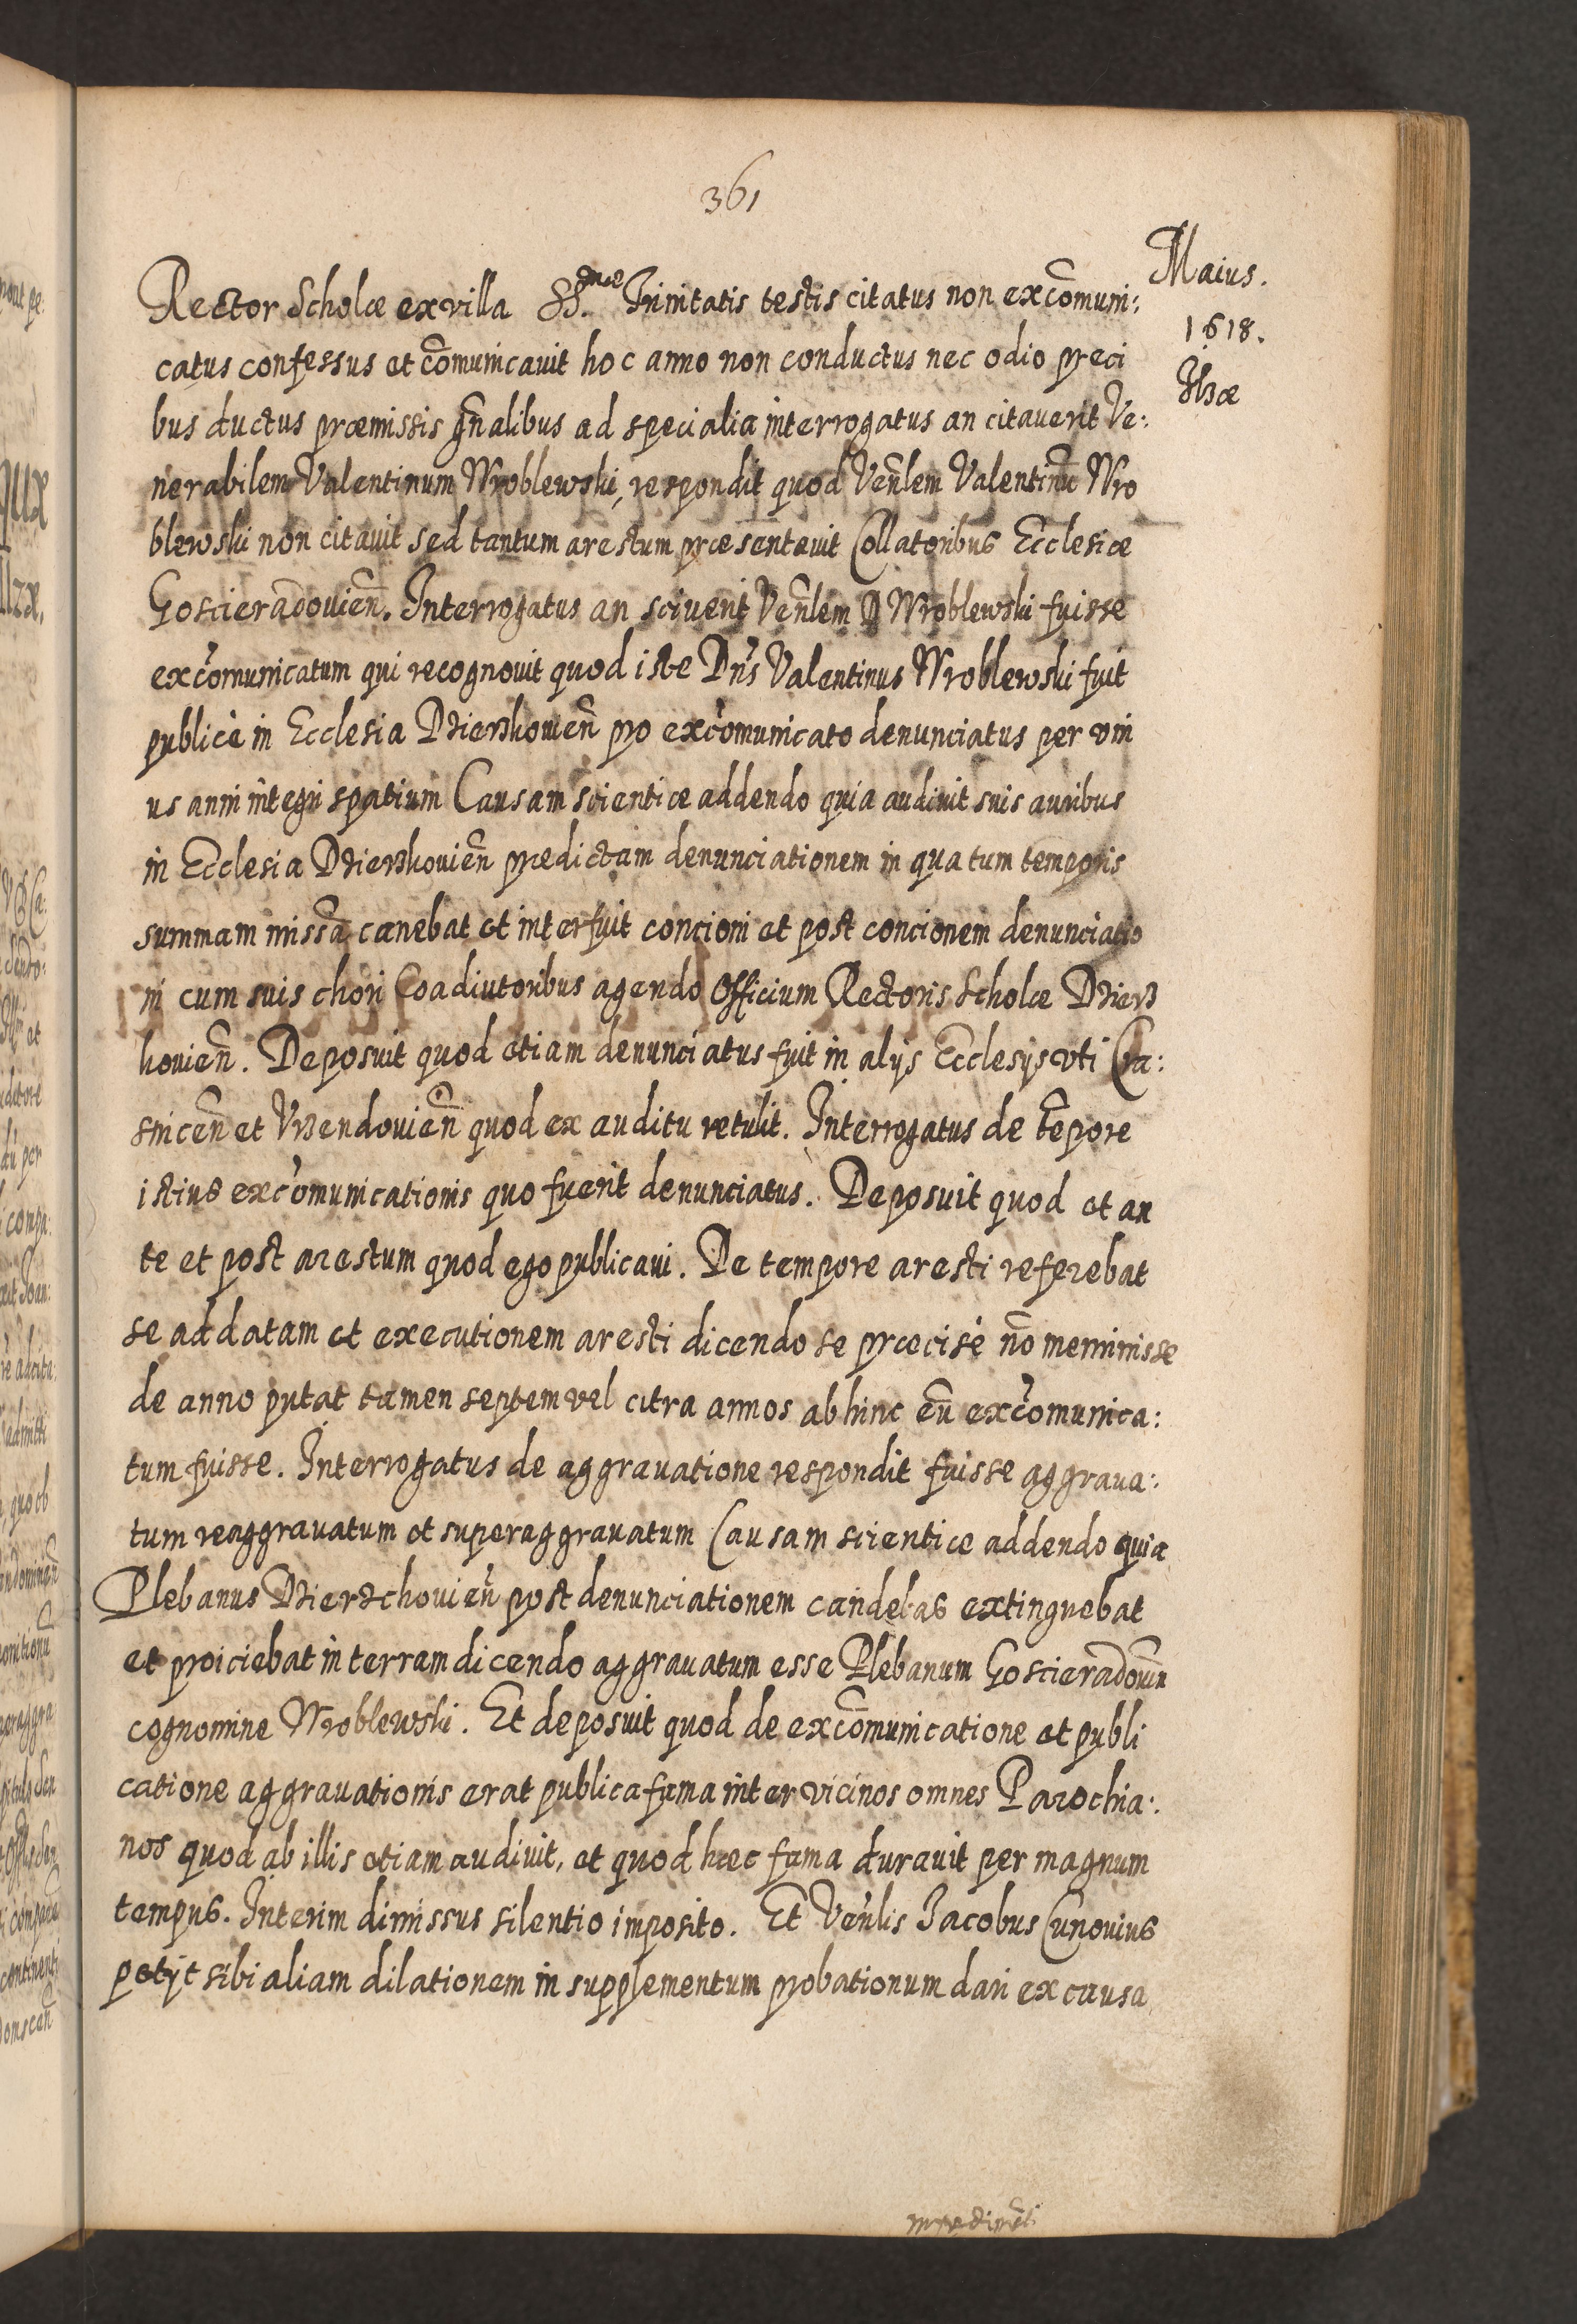 361
Maius.
1618.
Ilzæ
Rector Scholæ ex villa SS.mæ Trinitatis testis citatus non excōmuni:
catus confessus et cōmunicauit hoc anno non conductus nec odio preci
bus ductus præmissis gn̄alibus ad specialia interrogatus an citauerit Ve:
nerabilem Valentinum Wroblewski, respondit quod Ven̄lem Valentinū Wro
blewski non citauit sed tantum arestum præsentauit Collatoribus Ecclesiæ
Goscieradouien̄. Interrogatus an sciuerit Ven̄lem D Wroblewski fuisse
excōmunicatum qui recognouit quod iste Dn̄s Valentinus Wroblewski fuit
publicè in Ecclesia Dzierzkouien̄ pro excōmunicato denunciatus per vni
us anni integri spatium Causam scientiæ addendo quia audiuit suis auribus
in Ecclesia Dzierzkouien̄ predictam denunciationem in qua tum temporis
summam missā canebat et interfuit concioni et post concionem denunciatio
ni cum suis chori Coadiutoribus agendo Officium Rectoris Scholæ Dzierz
kouien̄. Deposuit quod etiam denunciatus fuit in alijs Ecclesijs vti Cra:
snicen̄ et Vrzendouien̄ quod ex auditu retulit. Interrogatus de tēpore
istius excōmunicationis quo fuerit denunciatus. Deposuit quod et an
te et post arestum quod ego publicaui. De tempore aresti referebat
se ad datam et executionem aresti dicendo se præcisè nō meminisse
de anno putat tamen septem vel citra annos abhinc eū excōmunica:
tum fuisse. Interrogatus de aggrauatione respondit fuisse aggraua:
tum reaggrauatum et superaggrauatum Causam scientiæ addendo quia
Plebanus Dzierzchouien̄ post denunciationem candelas extinguebat
et proiciebat in terram dicendo aggrauatum esse Plebanum Goscieradouien̄
cognomine Wroblewski. Et deposuit quod de excōmunicatione et publi
catione aggrauationis erat publica fama inter vicinos omnes Parochia:
nos quod ab illis etiam audiuit, et quod hæc fama durauit per magnum
tempus. Interim dimissus silentio imposito. Et Ven̄lis Jacobus Cunouius
petijt sibi aliam dilationem in supplementum probationum dari ex causa